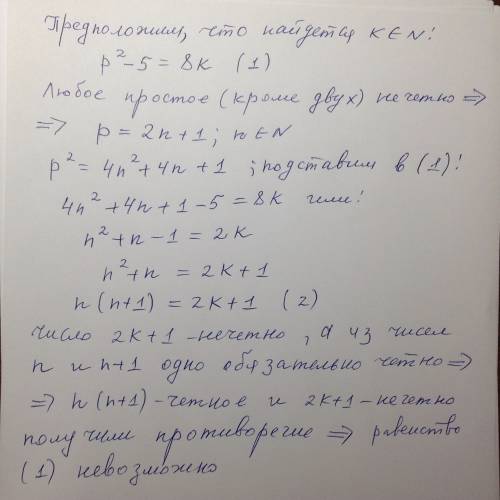 Предположим, что найдется K ∈ N:
p² - 5 = 8k (1)
Любое простое (кроме двух) нечетно ⇒
⇒ p = 2n + 1; n ∈ N
p² = 4n² + 4n + 1 ; подставим в (1):
4n² + 4n + 1 - 5 = 8k или:
n² + n - 1 = 2k
n² + n = 2k + 1
n (n+1) = 2k + 1 (2)
Число 2k+1 - нечетно, а из чисел
n и n+1 одно обязательно четно ⇒
⇒ n (n+1) - четное и 2k+1 - нечетно
получили противоречие ⇒ равенство
(1) невозможно